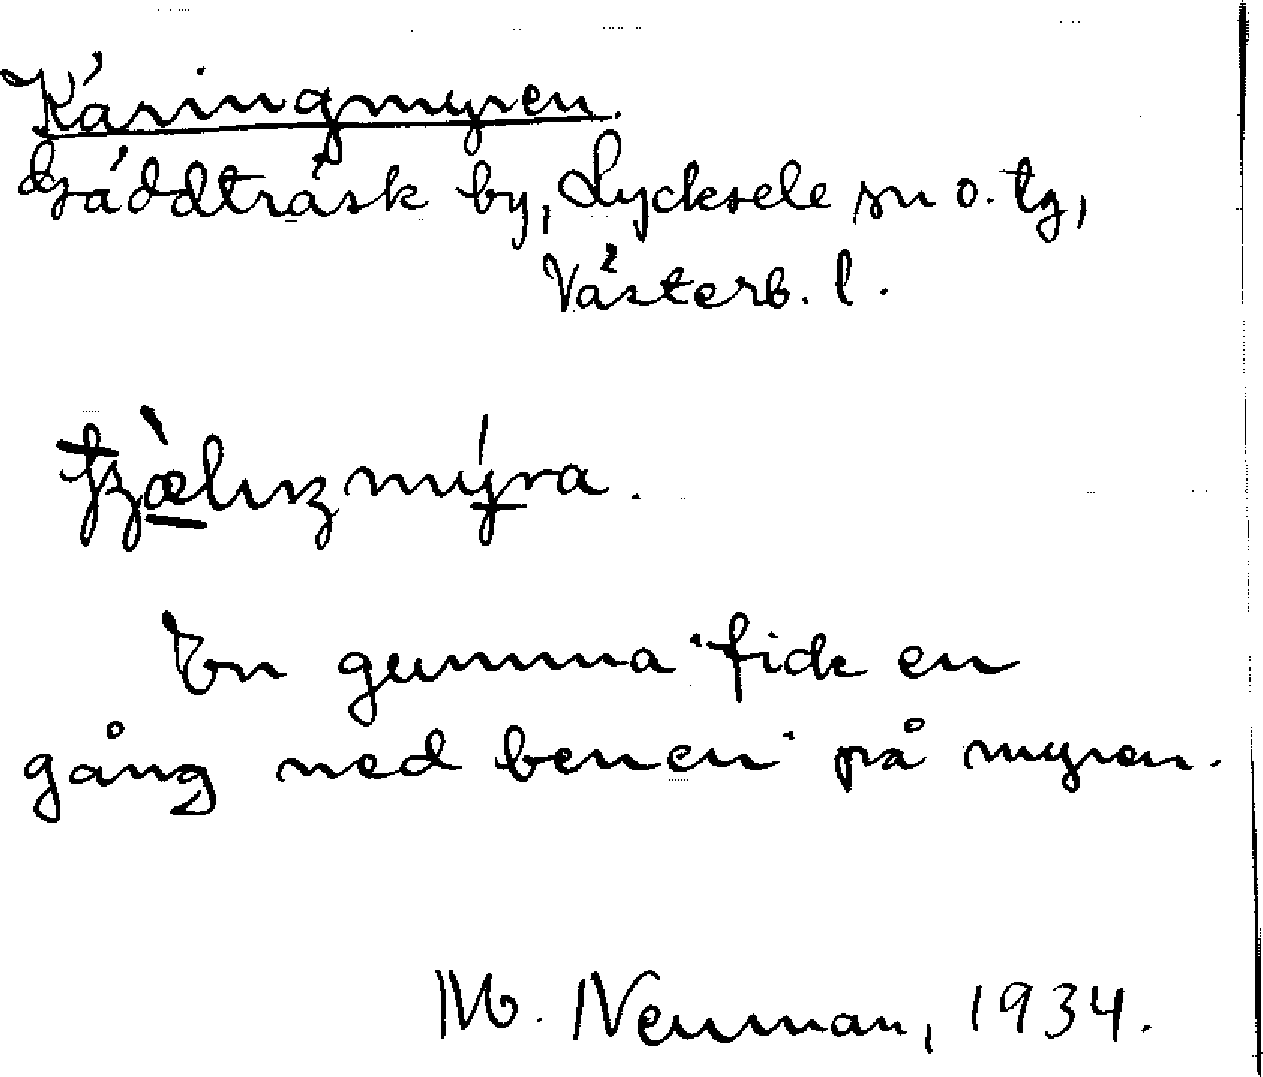 Käringmyren.
Gäddträsk by, Lycksele sn o. tg,
Västerb. l.
mýra.
En gumma fick en
gång ned benen på myren.
M. Neuman, 1934.